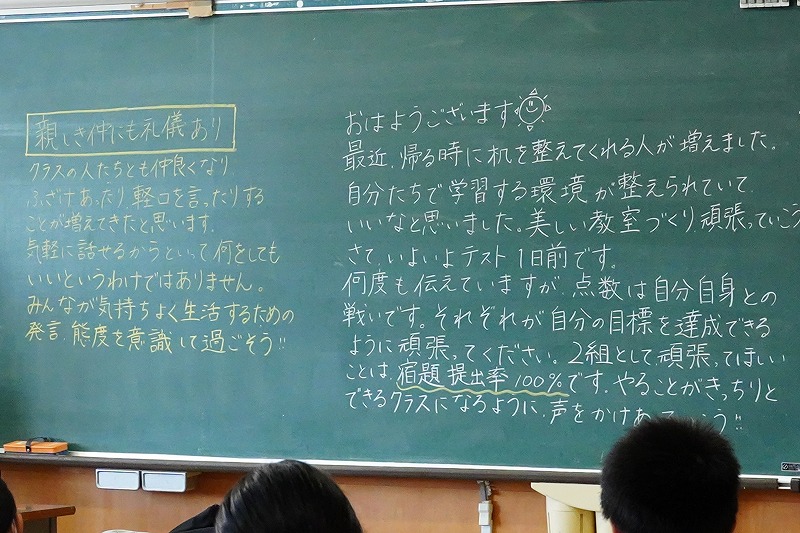 親しき仲にも礼儀あり
クラスの人たちとも仲良くなり
ふざけあったり、軽口を言ったりする
ことが増えてきたと思います。
気軽に話せるからといって何をしても
いいというわけではありません。
みんなが気持ちよく生活するための
発言、態度を意識して過ごそう!!
おはようございます
最近、帰る時に机を整えてくれる人が増えました。
自分たちで学習する環境が整えられていて、
いいなと思いました。美しい教室づくり頑張っていこう
さて、いよいよテスト1日前です。
何度も伝えていますが、点数は自分自身との
戦いです。それぞれが自分の目標を達成できる
ように頑張ってください。2組として、頑張ってほしい
ことは宿題提出率100%です。やることがきっちりと
できるクラスになるように、声をかけあっていこう!!